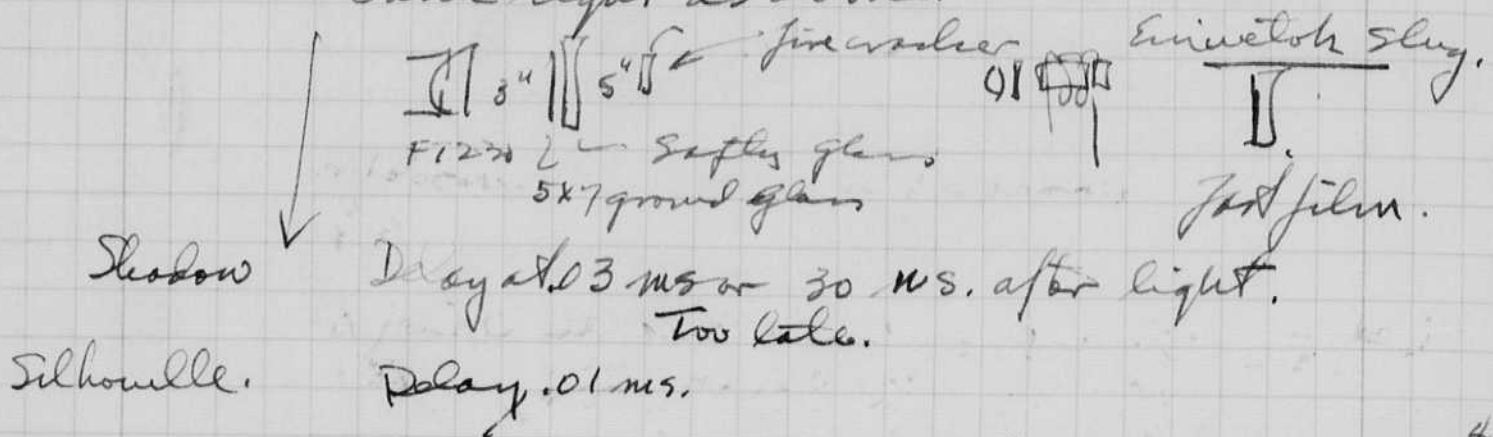 light as
3" 5" firecracker Eniwetok Slug.
Safty glass
5x7 ground glass Fast film.
Shadow Delay at .03 ms or 30 µs. after light.
Too late.
Silhouelle. Delay .01 ms.